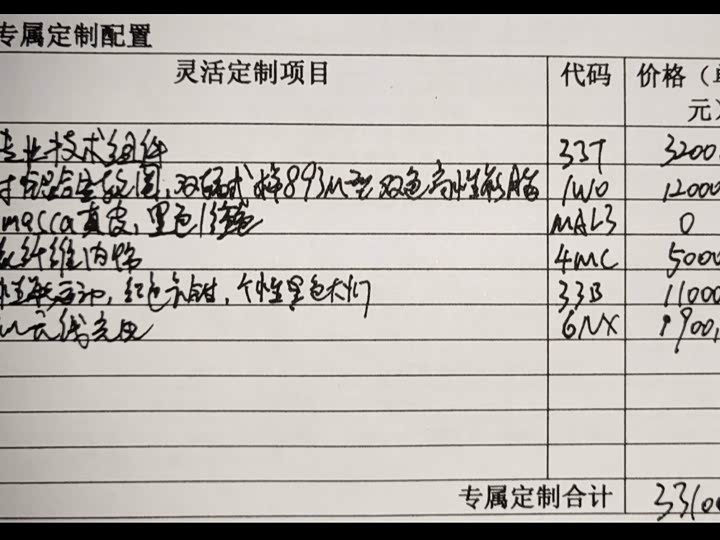 专属定制配置
灵活定制项目 代码 价格（
元
专业技术组件 33T 3200
寸铝合金轮圈，双辐式样893M型双色高性能轮胎 1W0 12000
masca真皮，黑色|缝色 MAL3 0
碳纤维内饰 4MC 5000
，红色卡钳，个性黑色大灯 33B 11000
无线充电 6NX 1900
专属定制合计 33100